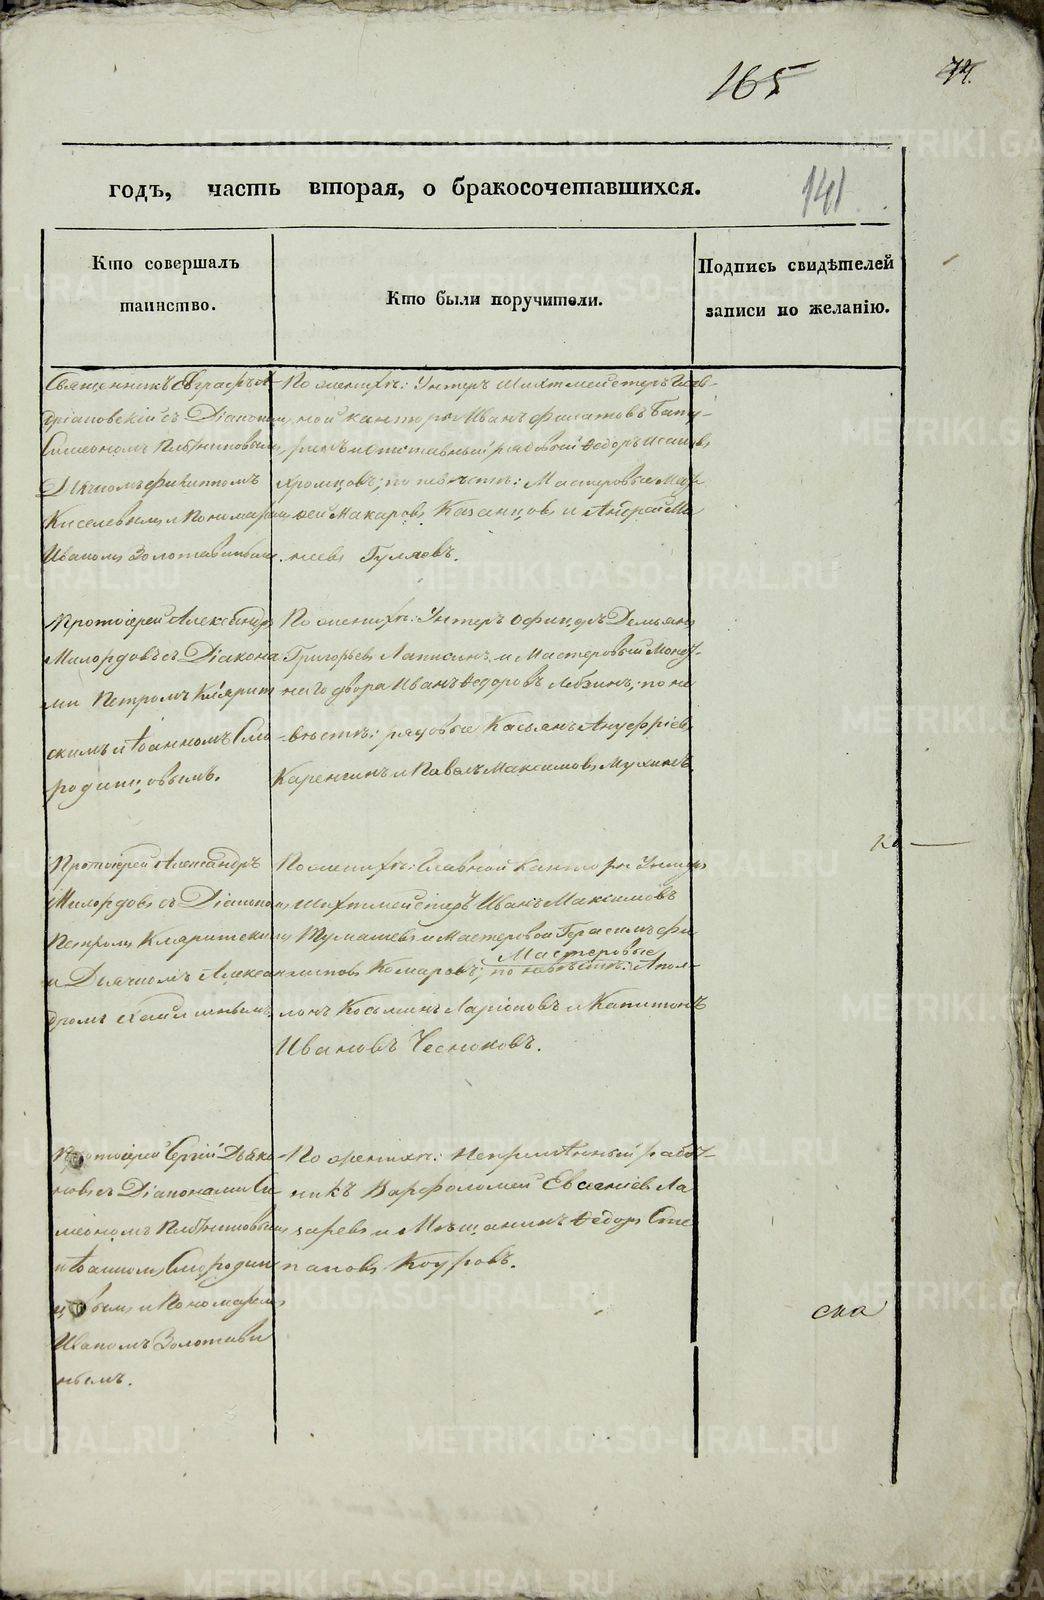 165
74.
годъ, часть вторая, о бракосочетавшихся.
141
Кто совершалъ
таинство.
Кто были поручители.
Подпись свидѣтелей
записи по желанію.
Священникъ Евграфъ А-
дріановскій съ Діакономъ
Симеономъ
Дьячкомъ Филиппомъ
Киселевымъ и Пономаремъ
Иваномъ Золотавинымъ
По женихѣ: Унтеръ Шихтмейстеръ Глав-
ной канторы Иванъ Филатовъ
и отставный рядовый Ѳедоръ Исаковъ
Хромцовъ; по невѣстѣ: Мастеровые
Макаровъ Казанцовъ и Андрей Ма
Гуляовъ.
Протоіерей Александръ
Милордовъ съ Діакона
ми Петромъ Клярит
скимъ и Іоанномъ Смо
родинцовымъ.
По женихѣ: Унтеръ офицеръ Демьянъ
Григорьевъ Лапшинъ и Мастеровый Монет-
наго двора Иванъ Ѳедоровъ; по не
вѣстѣ: рядовые Касьянъ Ануфріевъ
Карензинъ и Павелъ Максимовъ Мухинъ.
Протоіерей Александръ
Милордовъ съ Діакономъ
Петромъ Кляритскимъ
и Дьячкомъ Алексан
дромъ
По женихѣ: Главной Канторы Унтеръ
Шихтмейстеръ Иванъ Максимовъ
Тумашевъ и Мастеровой Герасимъ Фи
липповъ Комаровъ; по невѣстѣ: Мастеровые Апол-
лонъ Косьминъ Ларіоновъ и Капитонъ
Ивановъ Чесноковъ.
Протоіерей Сергій Дьяко
новъ съ Діаконами Си
меономъ
и Іоанномъ Смородин
цовымъ и Пономаремъ
Иваномъ Золотави
нымъ.
По женихѣ: Непремѣнный работ-
никъ Варфоломей Евгеніевъ Ла
заревъ и Мѣщанинъ Ѳедоръ Сте
пановъ Коуровъ.
ска